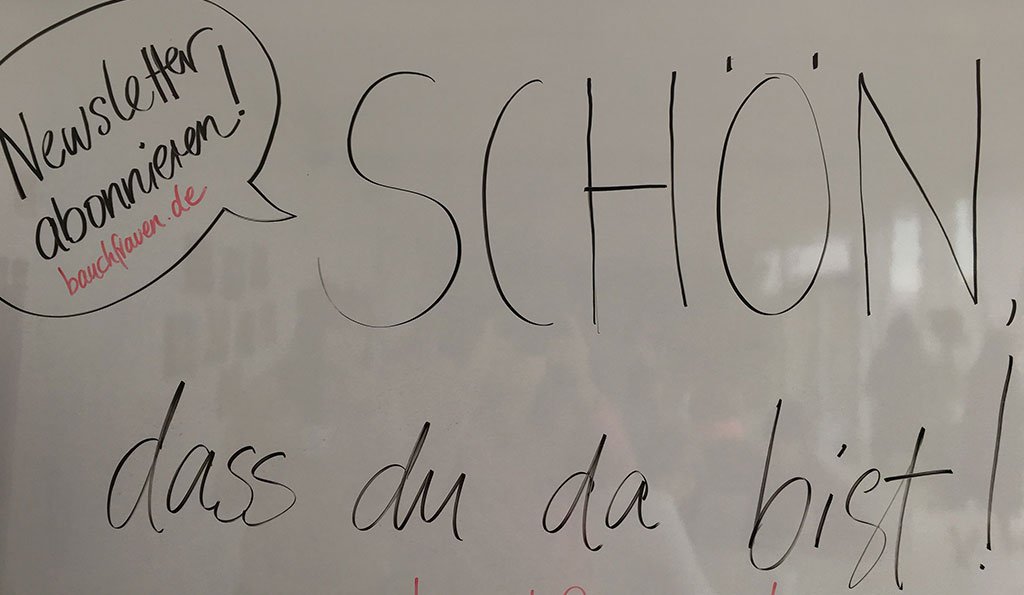 Newsletter
abonnieren!
bauchfrauen.de
SCHÖN,
dass du da bist!